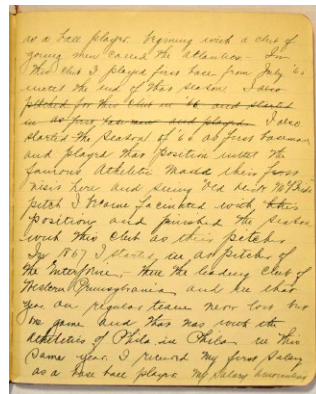 as a ball player. begining with a club of
young men called the atlantics. In
this club I played first base from July '65
until the end of that season I also
pitched for this club in '66 and started
in as first baseman and played I also
started the season of '66 as first baseman
and played that position until the
famous Athletic made their first
visit here and seeing Old Dick McBride
pitch I became facinated with this
position and finished the season
with this club as their pitcher
In 1867 I started in as pitcher of
the Enterprise, then the leading club of
Western Pennsylvania and in that
year our regular team never lost but
one game and that was with the
athletics of Phila. in Phila. in this
same year I received my first salary
as a base ball player my salary